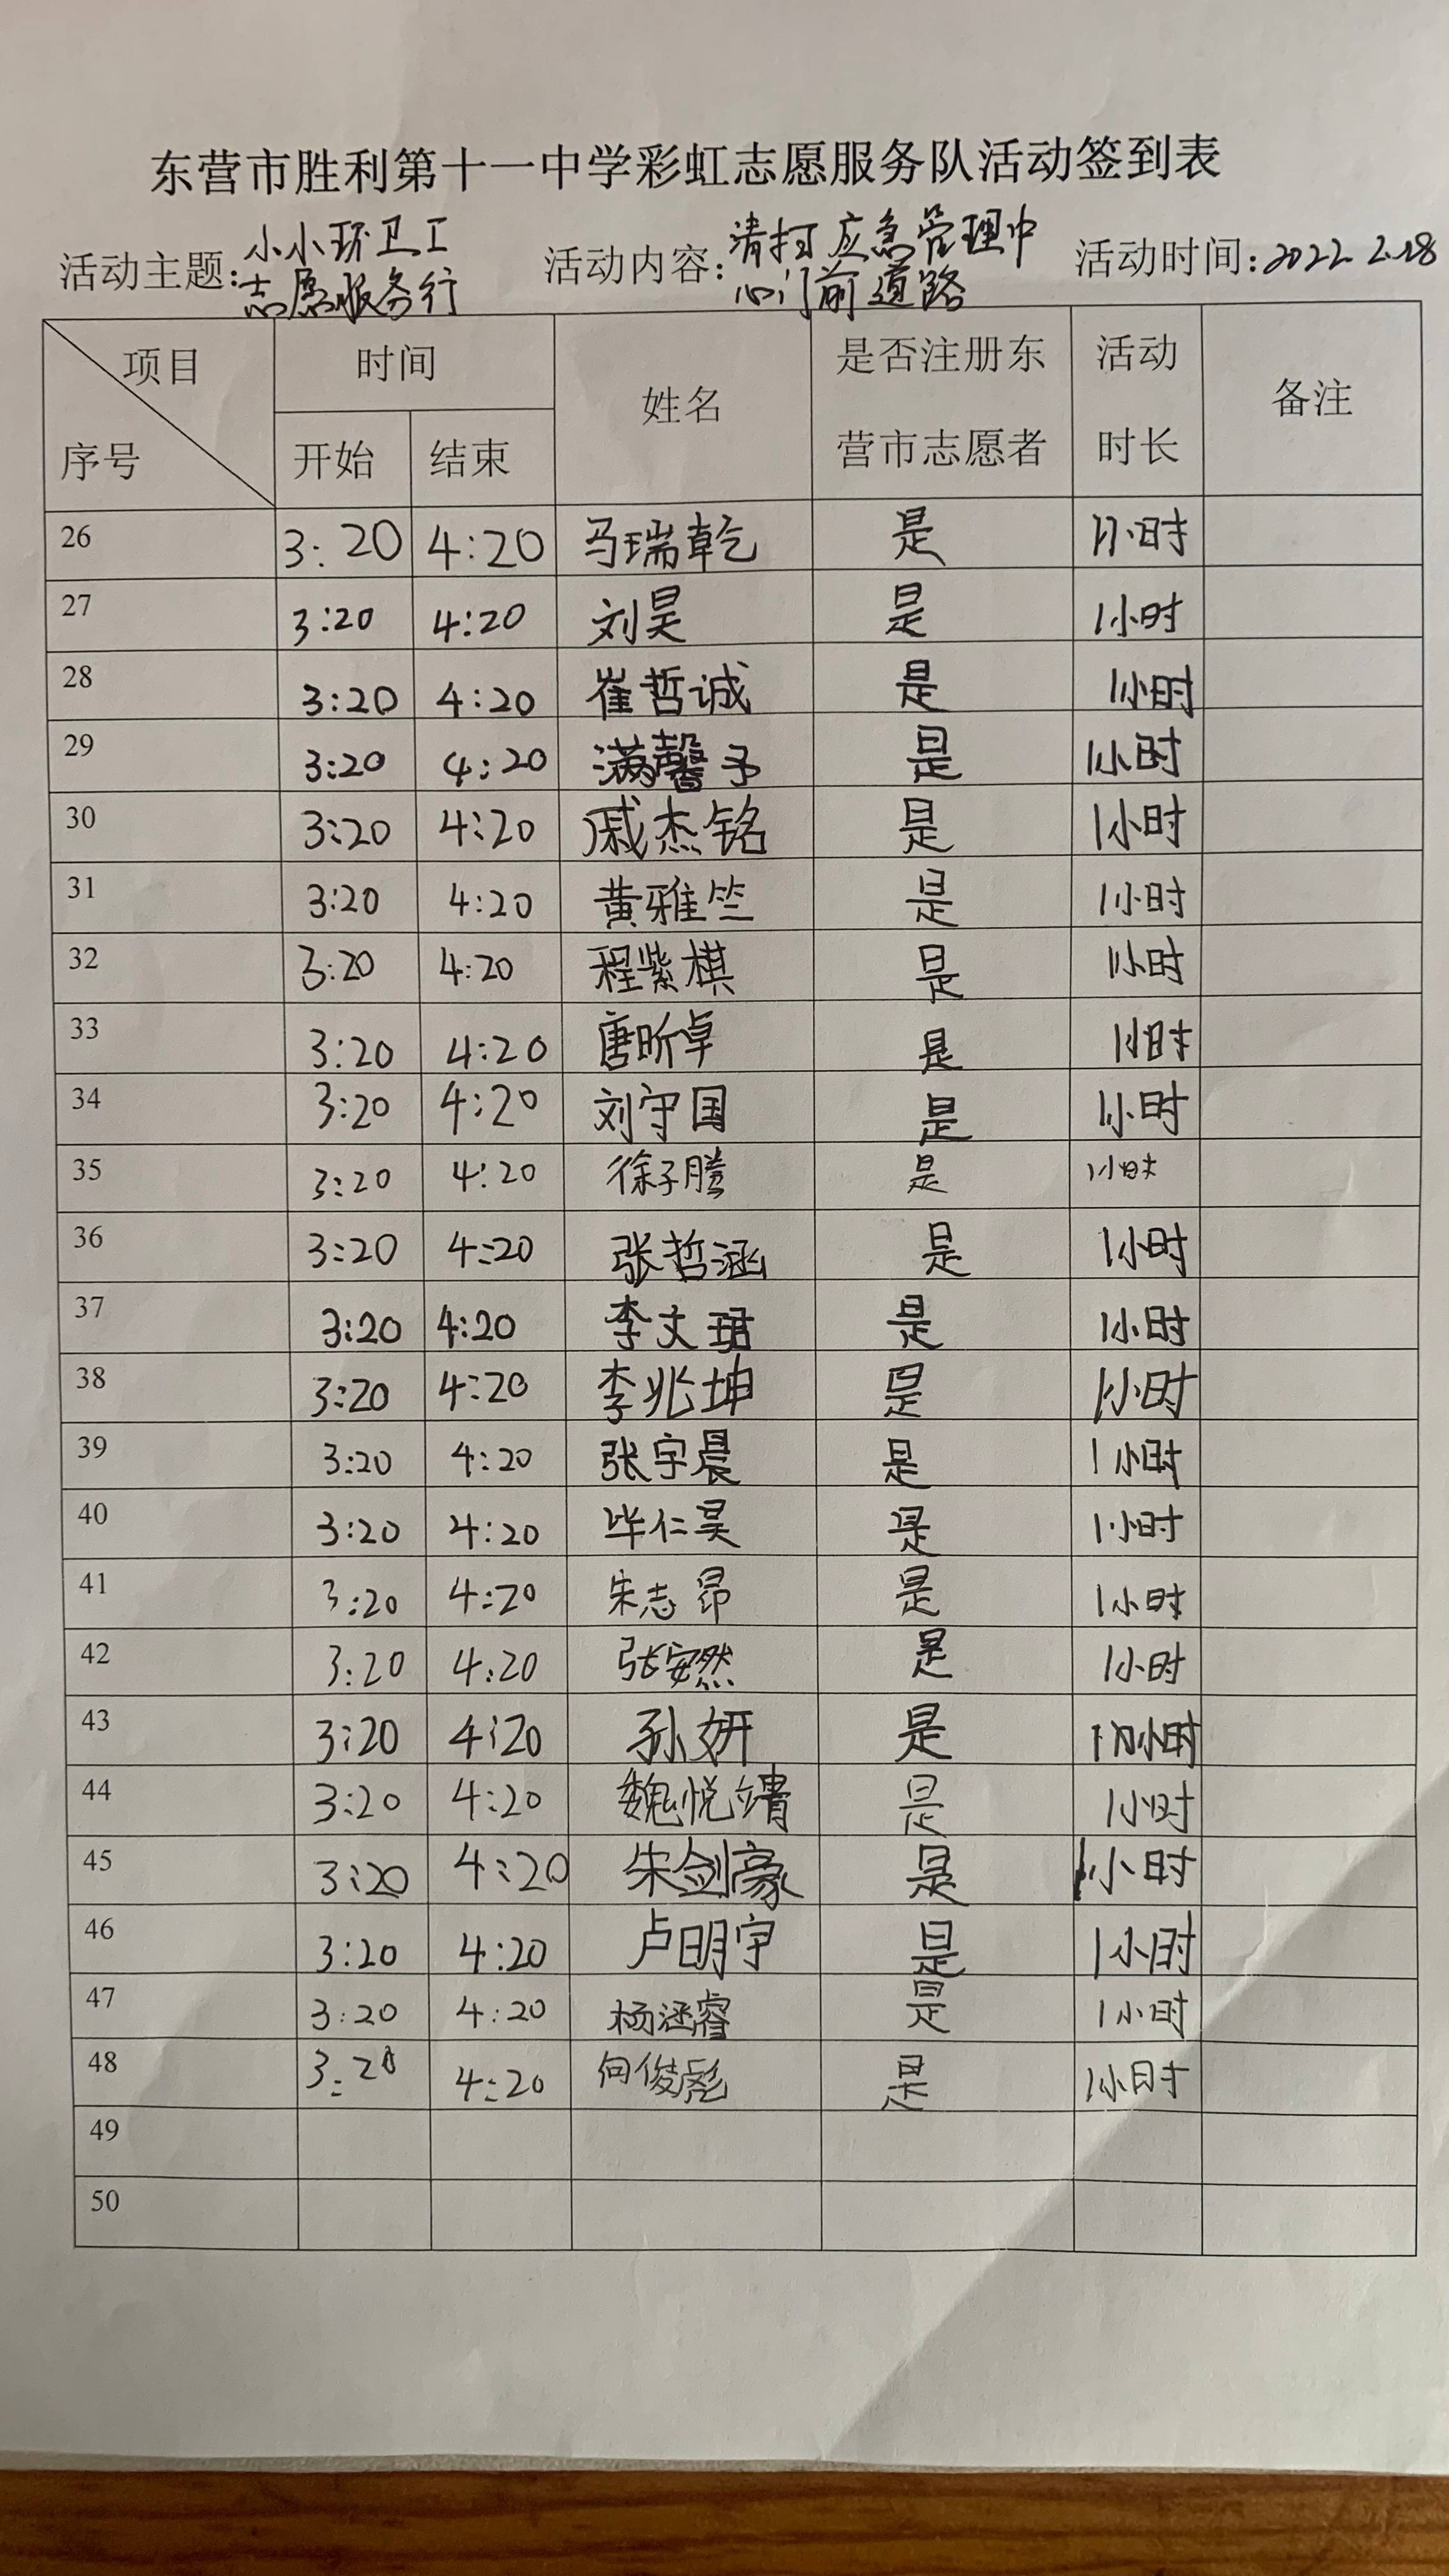 东营市胜利第十一中学彩虹志愿服务队活动签到表
活动主题:小小环卫工志愿服务行 活动内容:清扫应急管理中心门前道路 活动时间:2022 2.28
项目 序号 时间 开始 结束 姓名 是否注册东营市志愿者 活动时长 备注
26 3:20 4:20 马瑞乾 是 1小时
27 3:20 4:20 刘昊 是 1小时
28 3:20 4:20 崔哲诚 是 1小时
29 3:20 4:20 满馨予 是 1小时
30 3:20 4:20 戚杰铭 是 1小时
31 3:20 4:20 黄雅竺 是 1小时
32 3:20 4:20 程紫棋 是 1小时
33 3:20 4:20 唐昕卓 是 1小时
34 3:20 4:20 刘守国 是 1小时
35 3:20 4:20 徐子腾 是 1小时
36 3:20 4:20 张哲涵 是 1小时
37 3:20 4:20 李文珺 是 1小时
38 3:20 4:20 李兆坤 是 1小时
39 3:20 4:20 张宇晨 是 1小时
40 3:20 4:20 毕仁昊 是 1小时
41 3:20 4:20 宋志昂 是 1小时
42 3:20 4:20 张安然 是 1小时
43 3:20 4:20 孙妍 是 小时
44 3:20 4:20 魏悦靖 是 1小时
45 3:20 4:20 朱剑豪 是 1小时
46 3:20 4:20 卢明宇 是 1小时
47 3:20 4:20 杨涵睿 是 1小时
48 3:20 4:20 向俊彪 是 1小时
49
50